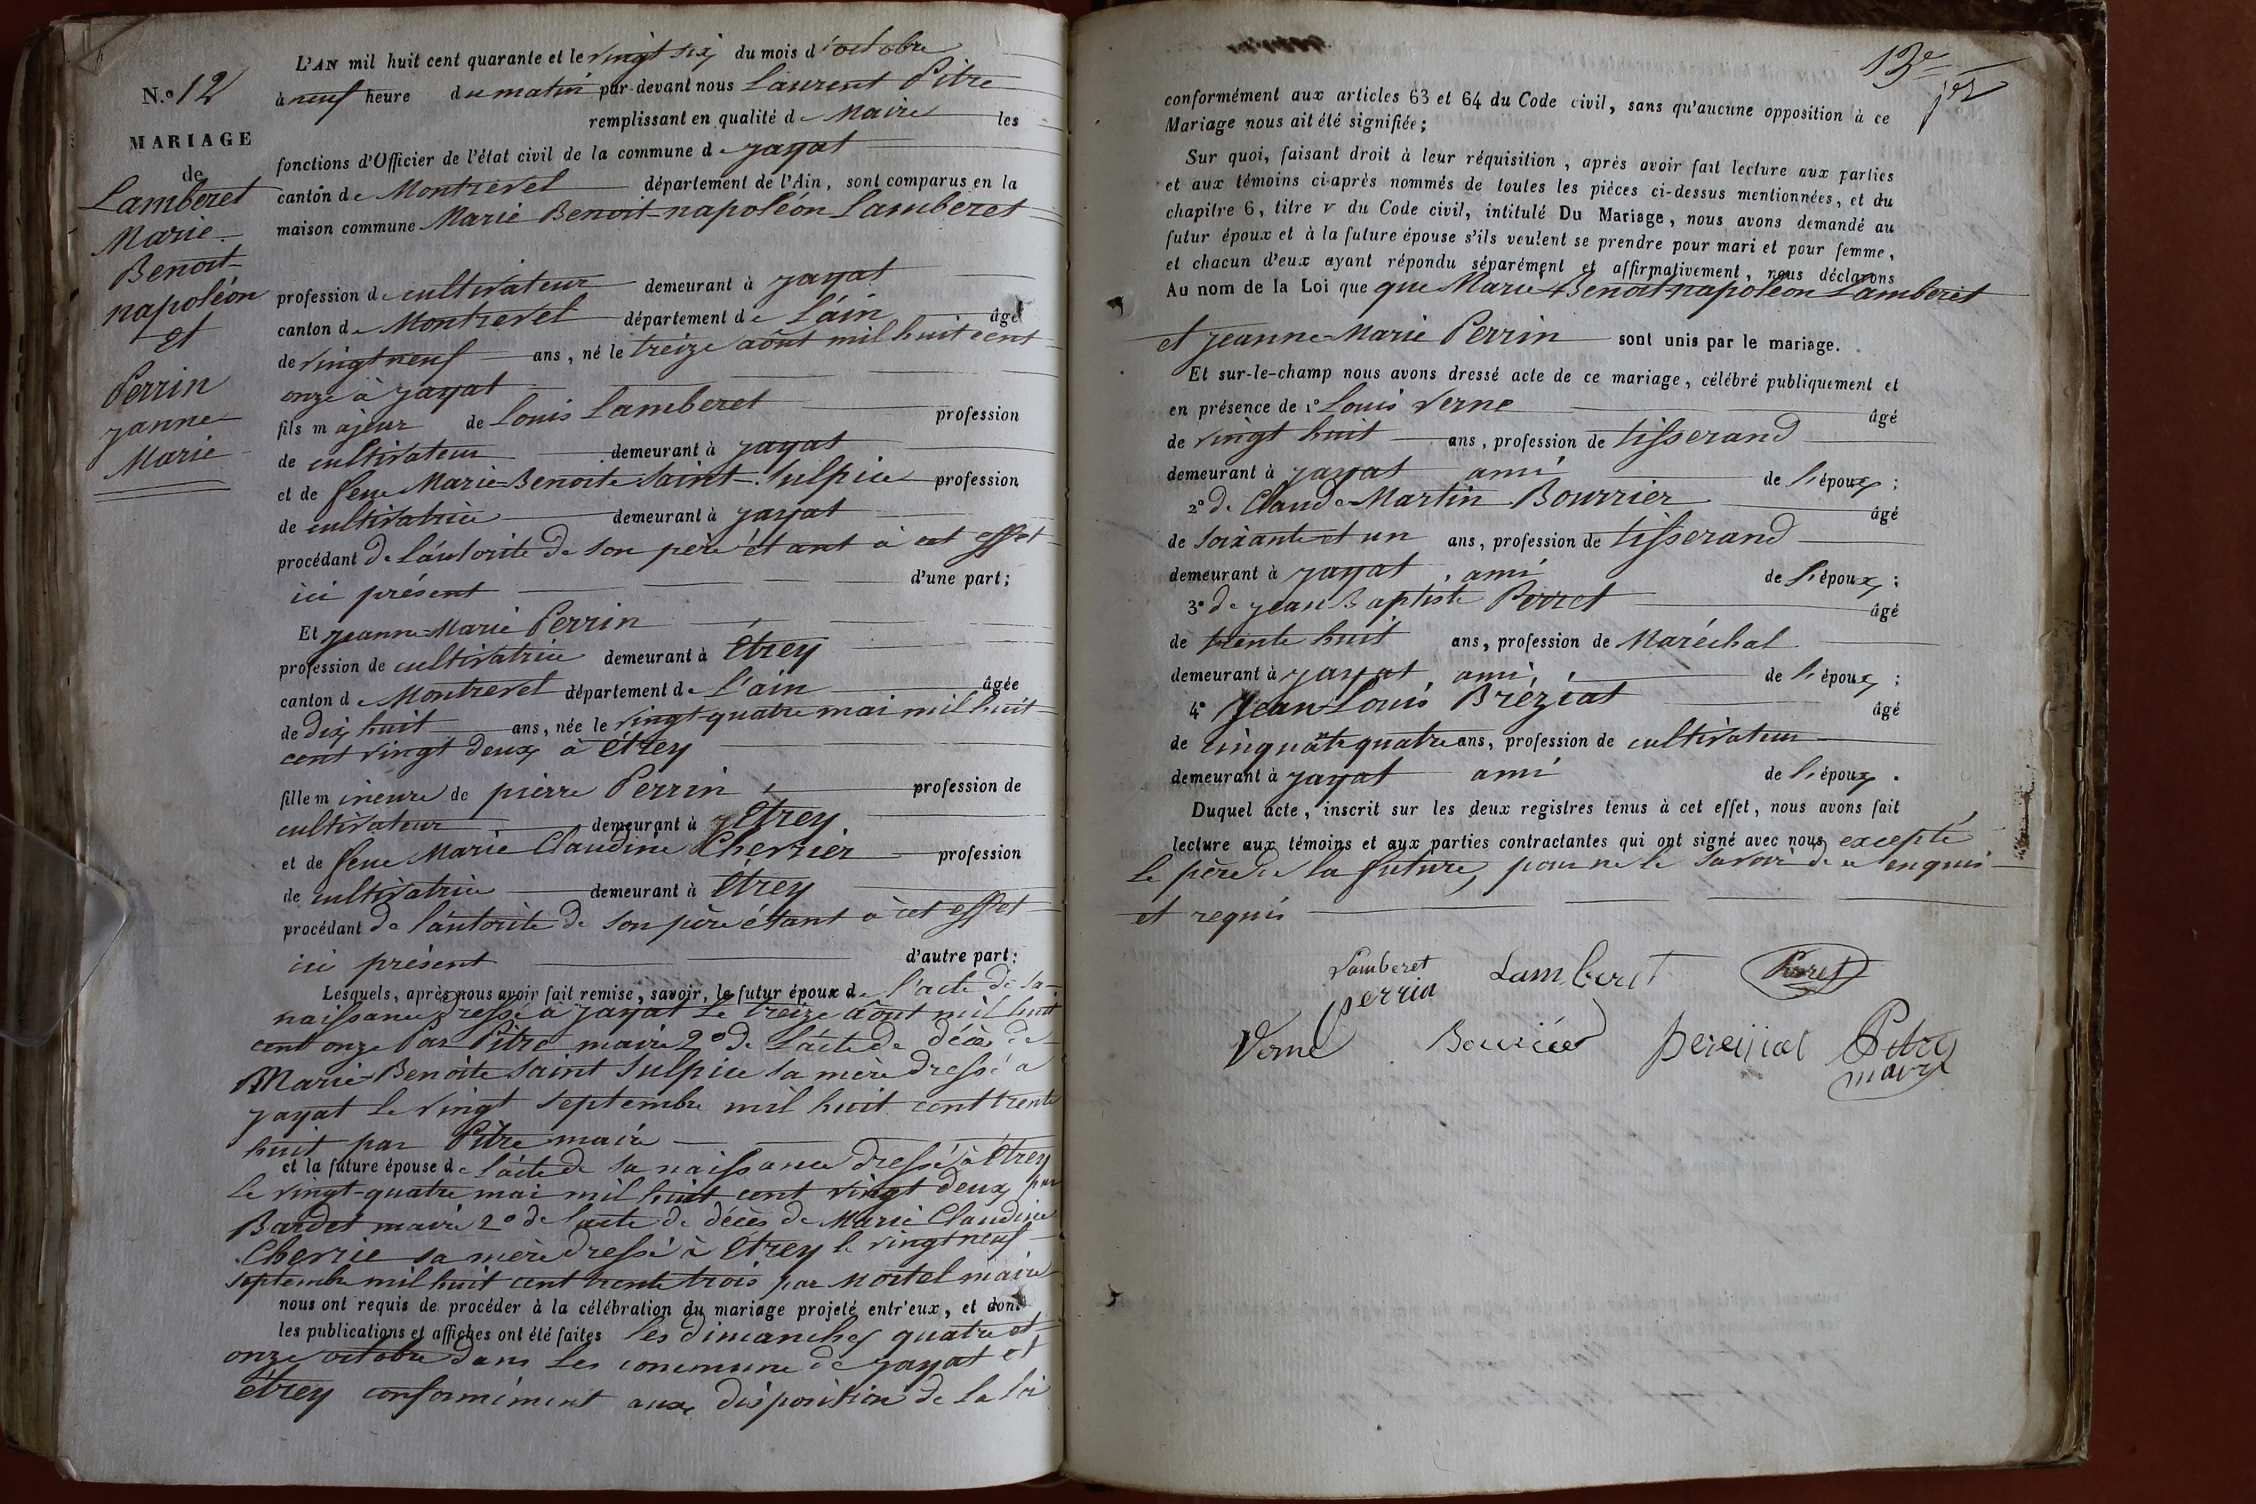 L'AN mil huit cent quarante et le vingt six du mois d'octobre
N.o 12
à neuf heure du matin par devant nous Laurent Pitre
remplissant en qualité de Maire les
MARIAGE
fonctions d'Officier de l'état civil de la commune de jayat
de
canton de Montrevel département de l'Ain, sont comparus en la
Lamberet
maison commune Marie Benoit-napoléon Lamberet
Marie
Benoit
napoléon
profession de cultivateur demeurant à jayat
et
canton de Montrevel département de L'ain âgé
Perrin
de vingt neuf ans, né le treize aôut mil huit cent
janne
onze à jayat
Marie
fils majeur de Louis Lamberet profession
de cultivateur demeurant à jayat
et de feue Marie-Benoite Saint-Sulpice profession
de cultivatrice demeurant à jayat
procédant de l'autorite de son père étant à cet effet
ici présent d'une part;
Et jeanne-Marie Perrin
profession de cultivatrice demeurant à Etrey
canton de Montrevel département de L'ain âgée
de dix huit ans, née le vingt-quatre mai mil huit
cent vingt deux à étrey
fille mineure de pierre Perrin profession de
cultivateur demeurant à Etrey
et de feue Marie Claudine Cherrier profession
de cultivatrice demeurant à Etrey
procédant de l'autorite de son père étant à cet effet
ici présent d'autre part:
Lesquels, après nous avoir fait remise, savoir, le futur époux de l'acte de sa
naissance dressé à jayat le treize aôut mil huit
cent onze Par Pitre maire 2o de l'acte de décès de
Marie-Benoite Saint Sulpice sa mère dressé a
jayat le vingt septembre mil huit cent trente
huit par Pitre maire
et la future épouse de l'acte de sa naissance dressé à Etrey
le vingt-quatre mai mil huit cent vingt deux par
Bardet maire 2o de l'acte de décès de Marie Claudine
Cherrie sa mère dressé à Etrey le vingt neuf
septembre mil huit cent trente trois par Mortel maire
nous ont requis de procéder à la célébration du mariage projeté entr'eux, et dont
les publications et affiches ont été faites les dimanches quatre et
onze octobre dans les commune de jayat et
étrey conformément aux disposition de la loi
13e
conformément aux articles 63 et 64 du Code civil, sans qu'aucune opposition à ce
Mariage nous ait été signifiée;
Sur quoi, faisant droit à leur réquisition, après avoir fait lecture aux parties
et aux témoins ci-après nommés de toutes les pièces ci-dessus mentionnées, et du
chapitre 6, titre V du Code civil, intitulé Du Mariage, nous avons demandé au
futur époux et à la future épouse s'ils veulent se prendre pour mari et pour femme,
et chacun d'eux ayant répondu séparément et affirmativement, nous déclarons
Au nom de la Loi que que Marie-Benoit-napoléon Lamberet
et jeanne-Marie Perrin sont unis par le mariage.
Et sur-le-champ nous avons dressé acte de ce mariage, célébré publiquement et
en présence de 1o Louis Verne âgé
de vingt huit ans, profession de tisserand
demeurant à jayat ami de l'époux;
2o de Claude-Martin Bourrier âgé
de soixante et un ans, profession de tisserand
demeurant à jayat, ami de l'époux;
3o de jean Baptiste Perret âgé
de trente huit ans, profession de Maréchal
demeurant à jayat, ami de l'époux;
4o jean-Louis Bréziat âgé
de cinquante quatre ans, profession de cultivateur
demeurant à jayat ami de l'époux.
Duquel acte, inscrit sur les deux registres tenus à cet effet, nous avons fait
lecture aux témoins et aux parties contractantes qui ont signé avec nous excepté
le père de la future, pour ne le savoir de ce enquis
et requis
Lamberet Lamberet Perret
perrin
Verne Bouriée Pitre
maire